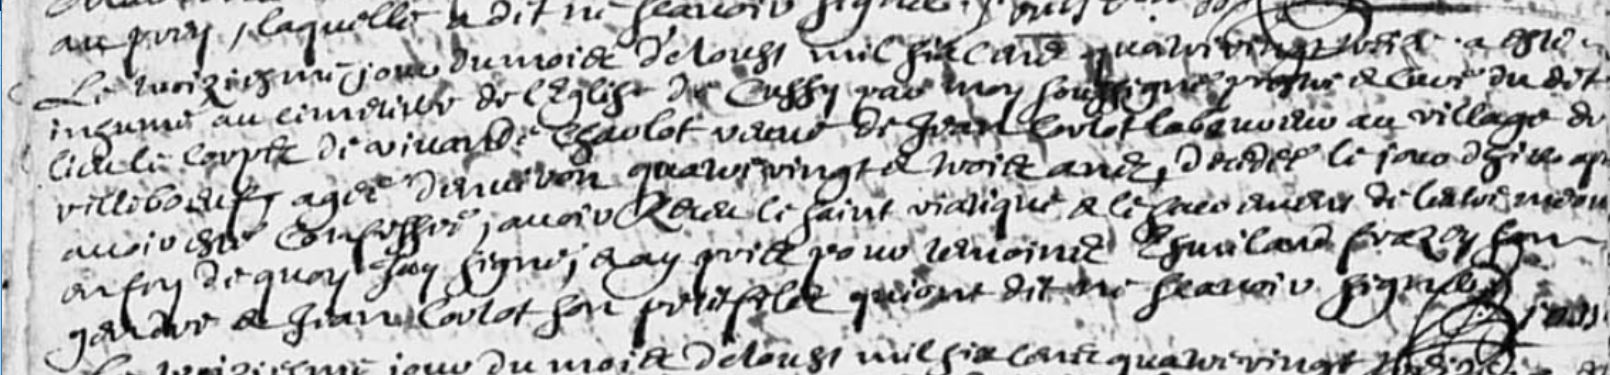 au prey, laquelle a dit ne scavoir signer
Le troiziesme jour du mois d'Aoust mil six cent quatrevingt treize a esté
inhumé au cimetiere de l'Eglise de Cussy par moy soussigné prestre & curé du dit
lieu le corps de vivande Charlot veuve de Jean Corlot laboureur au village de
villeboeuf, agée d'environ quatrevingt & trois ans, decedée le jour d'hier apres
avoir esté Confessée, avoir Receu le saint viatique & le sacrement de l'extreme on
en foy de quoy Jay signé, & ay pris pour temoins Esmiland son
gendre & Jean Corlot son petit fils qui ont dit ne scavoir signer
troiziesme jour du mois d'Aoust mil six cent quatrevingt